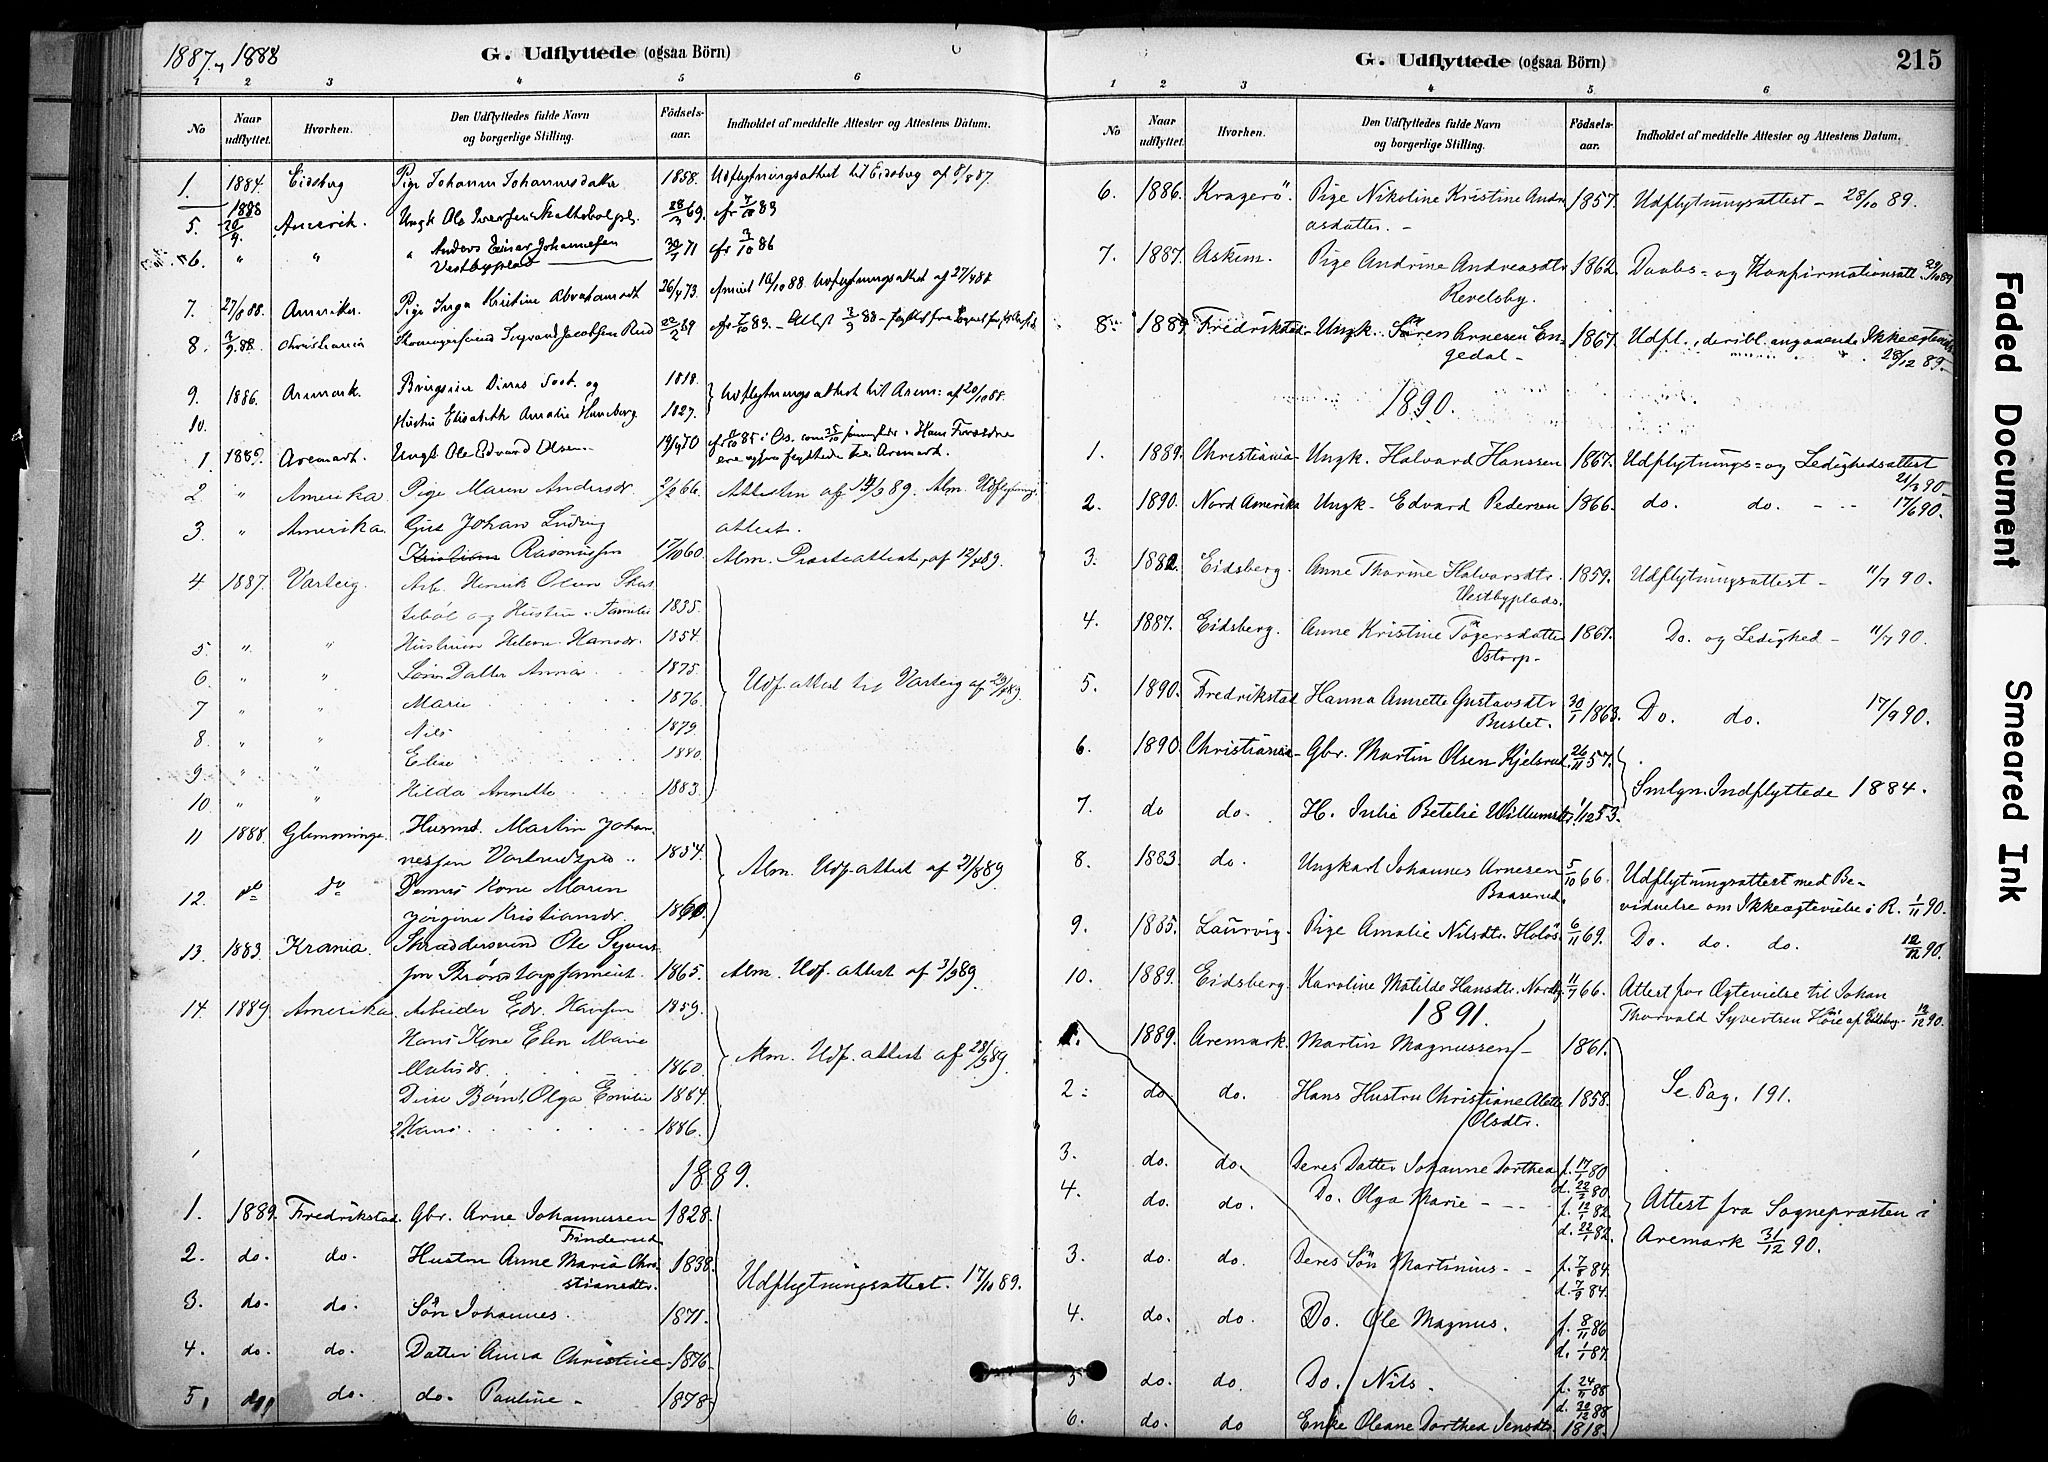 1887 1888
G. Udflyttede (ogsaa Börn)
1 2 3 4 5 6
No
Naar udflyttet.
Hvorhen.
Den Udflyttedes fulde Navn og borgerlige Stilling.
Födsels-aar.
Indholdet af meddelte Attester og Attestens Datum.
1. 1884. Eidsberg Pige Johanne Johannesdatter 1858. Udflytningsattest til Eidsberg af 8/8 87.
1888
5. 20/9. Amerik. Ungk Ole Iversen 28/3 69.
6. " " " Anders Einar Johannesen 30/1 71 cfr 3/10 86
Vestbyplads
7. 27/8 88. Amerika. Pige Inga Kristine Abrahamsdt 26/4 73. Udflytningsattest af 27/4 88
8. 3/9 88. Christiania Ingvard Jacobsen Rud 22/2 69
9. 1886. Aremark 1818. Udflytningsattest til Arem: af 20/10 88.
10. Hustru Elisabeth Amalie 1827.
1 1885. Aremark. Ungk Ole Edvard Olsen 19/4 70
flyttede til Aremark.
2 " Amerika Pige Maren Andersdr. 2/2 66. Attesten af 14/3 89. Alm. Udflytnings
3. " Amerika. Gut Johan Ludvig attest.
Kristian Rasmussen 17/10 60. Alm. Presteattest, af 12/4 89.
4 1887. Varteig. Arb. Henrik Olsen Skar
tebøl og Hustru. Familie 1835.
5 " " Hustruen Helene Hansdr. 1854.
6 " " Datter Anna 1875
7 " " Marie 1876.
Udf. attest til Varteig af 23/4 89.
8 " " Nils 1879
9 " " Elise 1880.
10 " " Hilda Annette 1883.
11 1888. Glemminge. Husmd. Martin Johan
nessen 1854.
Alm. Udf. attest af 21/8 89
12. do do Dennes Kone Maren
Jørgine Kristiansdr. 1860.
13 1883. Krania. Skræddersvend Ole Syvert
sen 1865. Alm. Udf. attest af 3/9 89.
14. 1889. Amerika. Arbeider Edv. Hansen 1859.
Hans Kone Elen Marie
1860.
Alm. Udf. attest af 28/9 89.
Disse Børn 1, Olga Emilie 1884.
2 Hans 1886.
1889.
1. 1889. Fredrikstad. Gbr. Arne Johannessen 1828.
Finderud
2. do. do. Hustru Anne Maria Chri 1838.
stiansdtr.
Udflytningsattest. 17/10 89.
3. do. do. Søn Johannes. 1871.
4. do. do. Datter Anna Christine 1876.
5. do. do. do. Pauline 1878.
G. Udflyttede (ogsaa Börn)
215
1 2 3 4 5 6
No
Naar udflyttet.
Hvorhen.
Den Udflyttedes fulde Navn og borgerlige Stilling.
Födsels-aar.
Indholdet af meddelte Attester og Attestens Datum.
6. 1886. Kragerö. Pige Nikoline Kristine Andre 1857. Udflytningsattest - 28/10 89.
asdatter.
7. 1887. Askim. Pige Andrine Andreasdtr 1862. Daabs- og Konfirmationsatt. 29/10 89
Revelsby.
8 1889. Fredrikstad Ungk. Sören Arnesen En 1867. Udfl., deribl. angaaende Ikkeægtevielse
gedal 28/12 89
1890.
1. 1889. Christiania Ungk. Halvard Hanssen 1867. Udflytnings- og Ledighedsattest
21/3 90
2. 1890. Nord Amerika Ungk. Edvard Pedersen 1866. do. do. 17/6 90.
3. 1882. Eidsberg. Anne Thorine Halvorsdtr. 1859. Udflytningsattest 11/7 90.
Vestbyplads.
4. 1887. Eidsberg. Anne Kristine Tögersdatter 1867. Do. og Ledighed - 11/7 90.
Ostorp
5. 1890. Fredrikstad Hanna Annette Gustavsdtr 30/1 1863. Do. do. 17/9 90.
Buslet.
6. 1890. Christiania Gbr. Martin Olsen Kjelsrud 26/11 57.
Smlgn. Indflyttede 1884.
7. do do. H. Julie Betelie Willumsdtr. 1/12 53.
8. 1883. do. Ungkarl Johannes Arnesen 5/10 66. Udflytningsattest med Be-
Baaserud. vidnelse om Ikkeægtevielse i R. 1/11 90.
9. 1885. Laurvig. Pige Amalie Nilsdtr. Holös 6/11 69. Do. do. do. 12/12 90.
10. 1889. Eidsberg. Karoline Matilde Hansdtr. Nordby 11/7 66. Attest for Ægtevielse til Johan
Thorvald Syvertsen Höie af Eidsberg 12/12 90.
1891.
1. 1889. Aremark. Martin Magnussen 1861.
2 do do. Hans Hustru Christiane Alette 1858. Se Pag. 191.
Olsdtr.
3. do. do. Deres Datter Johanne Dorthea f. 17/1 80
d. 22/1 80.
4. do. do. Do. Olga Marie f. 12/1 82
d. 22/1 82.
Attest fra Sognepræsten i
Aremark 31/12 90.
3. do. do. Deres Sön Martinius f. 7/8 84.
d. 7/9 84.
4. do. do. Do. Ole Magnus. f. 8/11 86
d. 1/1 87.
5 do. do. Do. Nils. f. 24/11 88
d. 20/12 88
6. do. do Enke Oleane Dorthea Jensdtr. 1818.
Faded Document
Smeared Ink